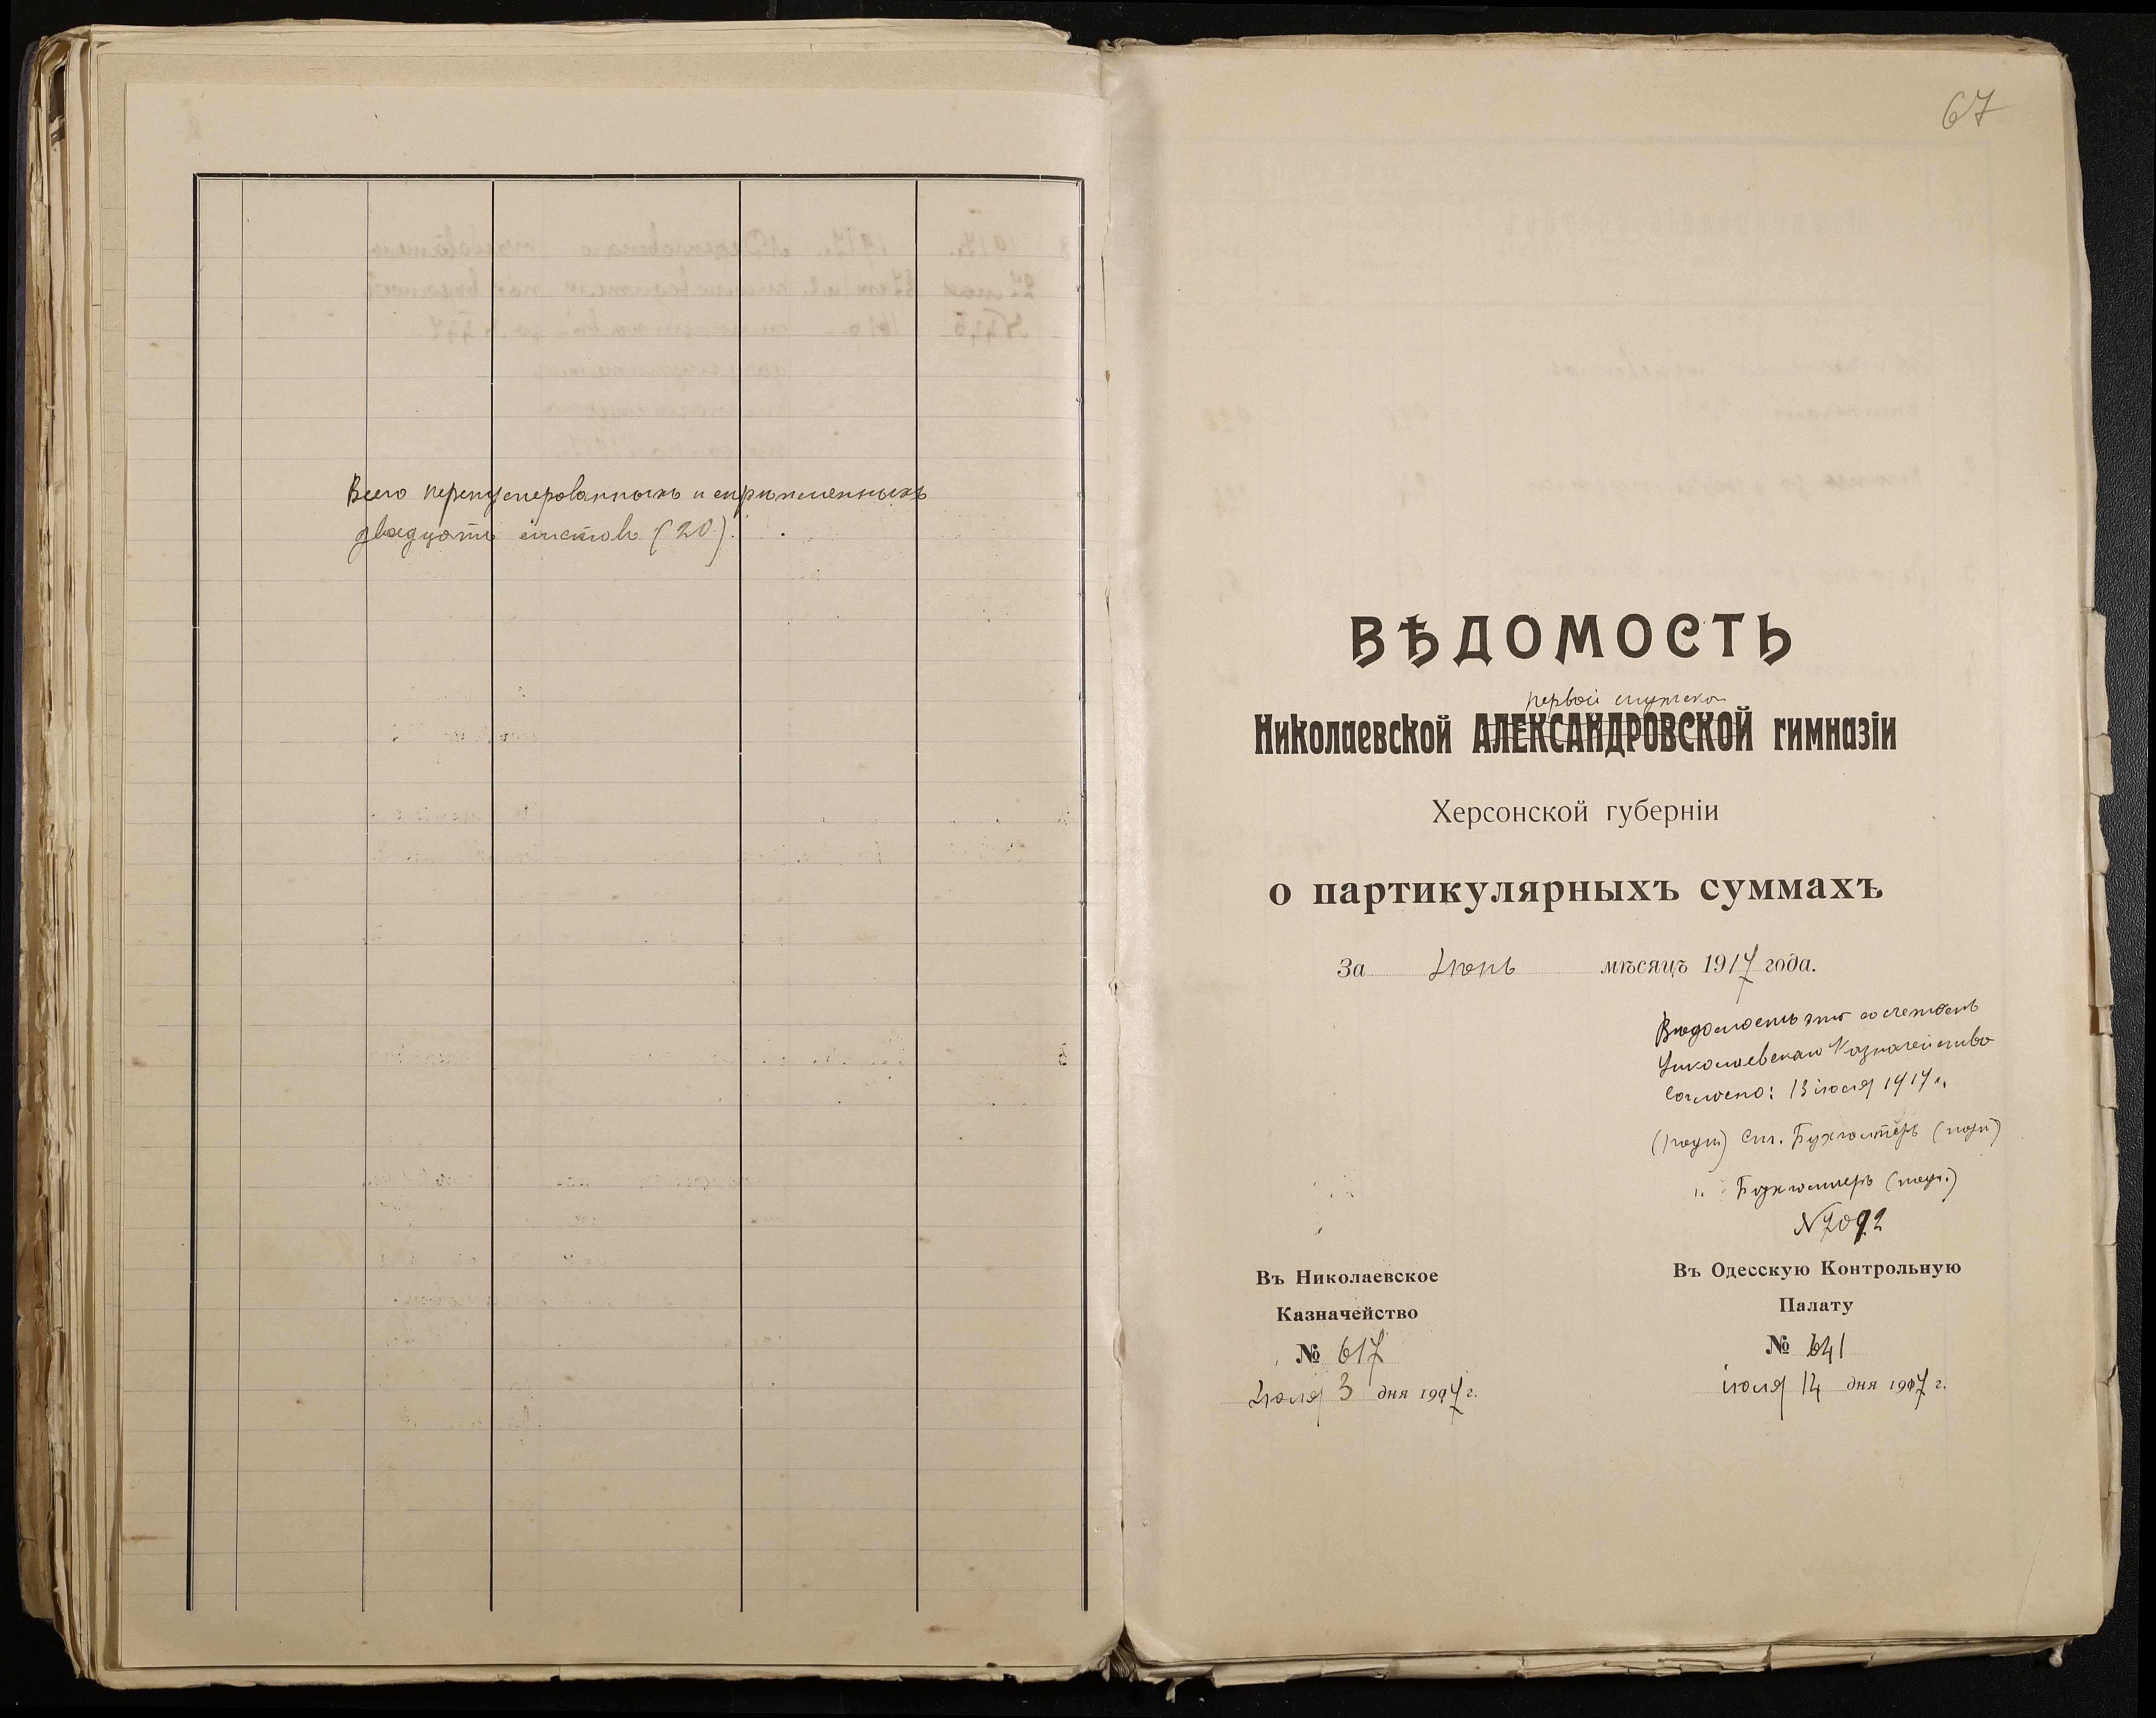 Всего перенумерованныхъ и скрѣпленныхъ
двадцать листовъ (20).
67
ВѢДОМОСТЬ
первой мужской
Николаевской АЛЕКСАНДРОВСКОЙ гимназіи
Херсонской губерніи
о партикулярныхъ суммахъ
За Іюнь мѣсяцъ 1917 года.
Вѣдомость эта со счетомъ
Николаевскаго Казначейства
согласно: 13 іюля 1917 г.
(подп) Ст. Бухгалтеръ (подп)
" Бухгалтеръ (подп.)
N 2092
Въ Николаевское
Казначейство
№ 617
Іюля 3 дня 1917 г.
Въ Одесскую Контрольную
Палату
№ 641
іюля 14 дня 1917 г.